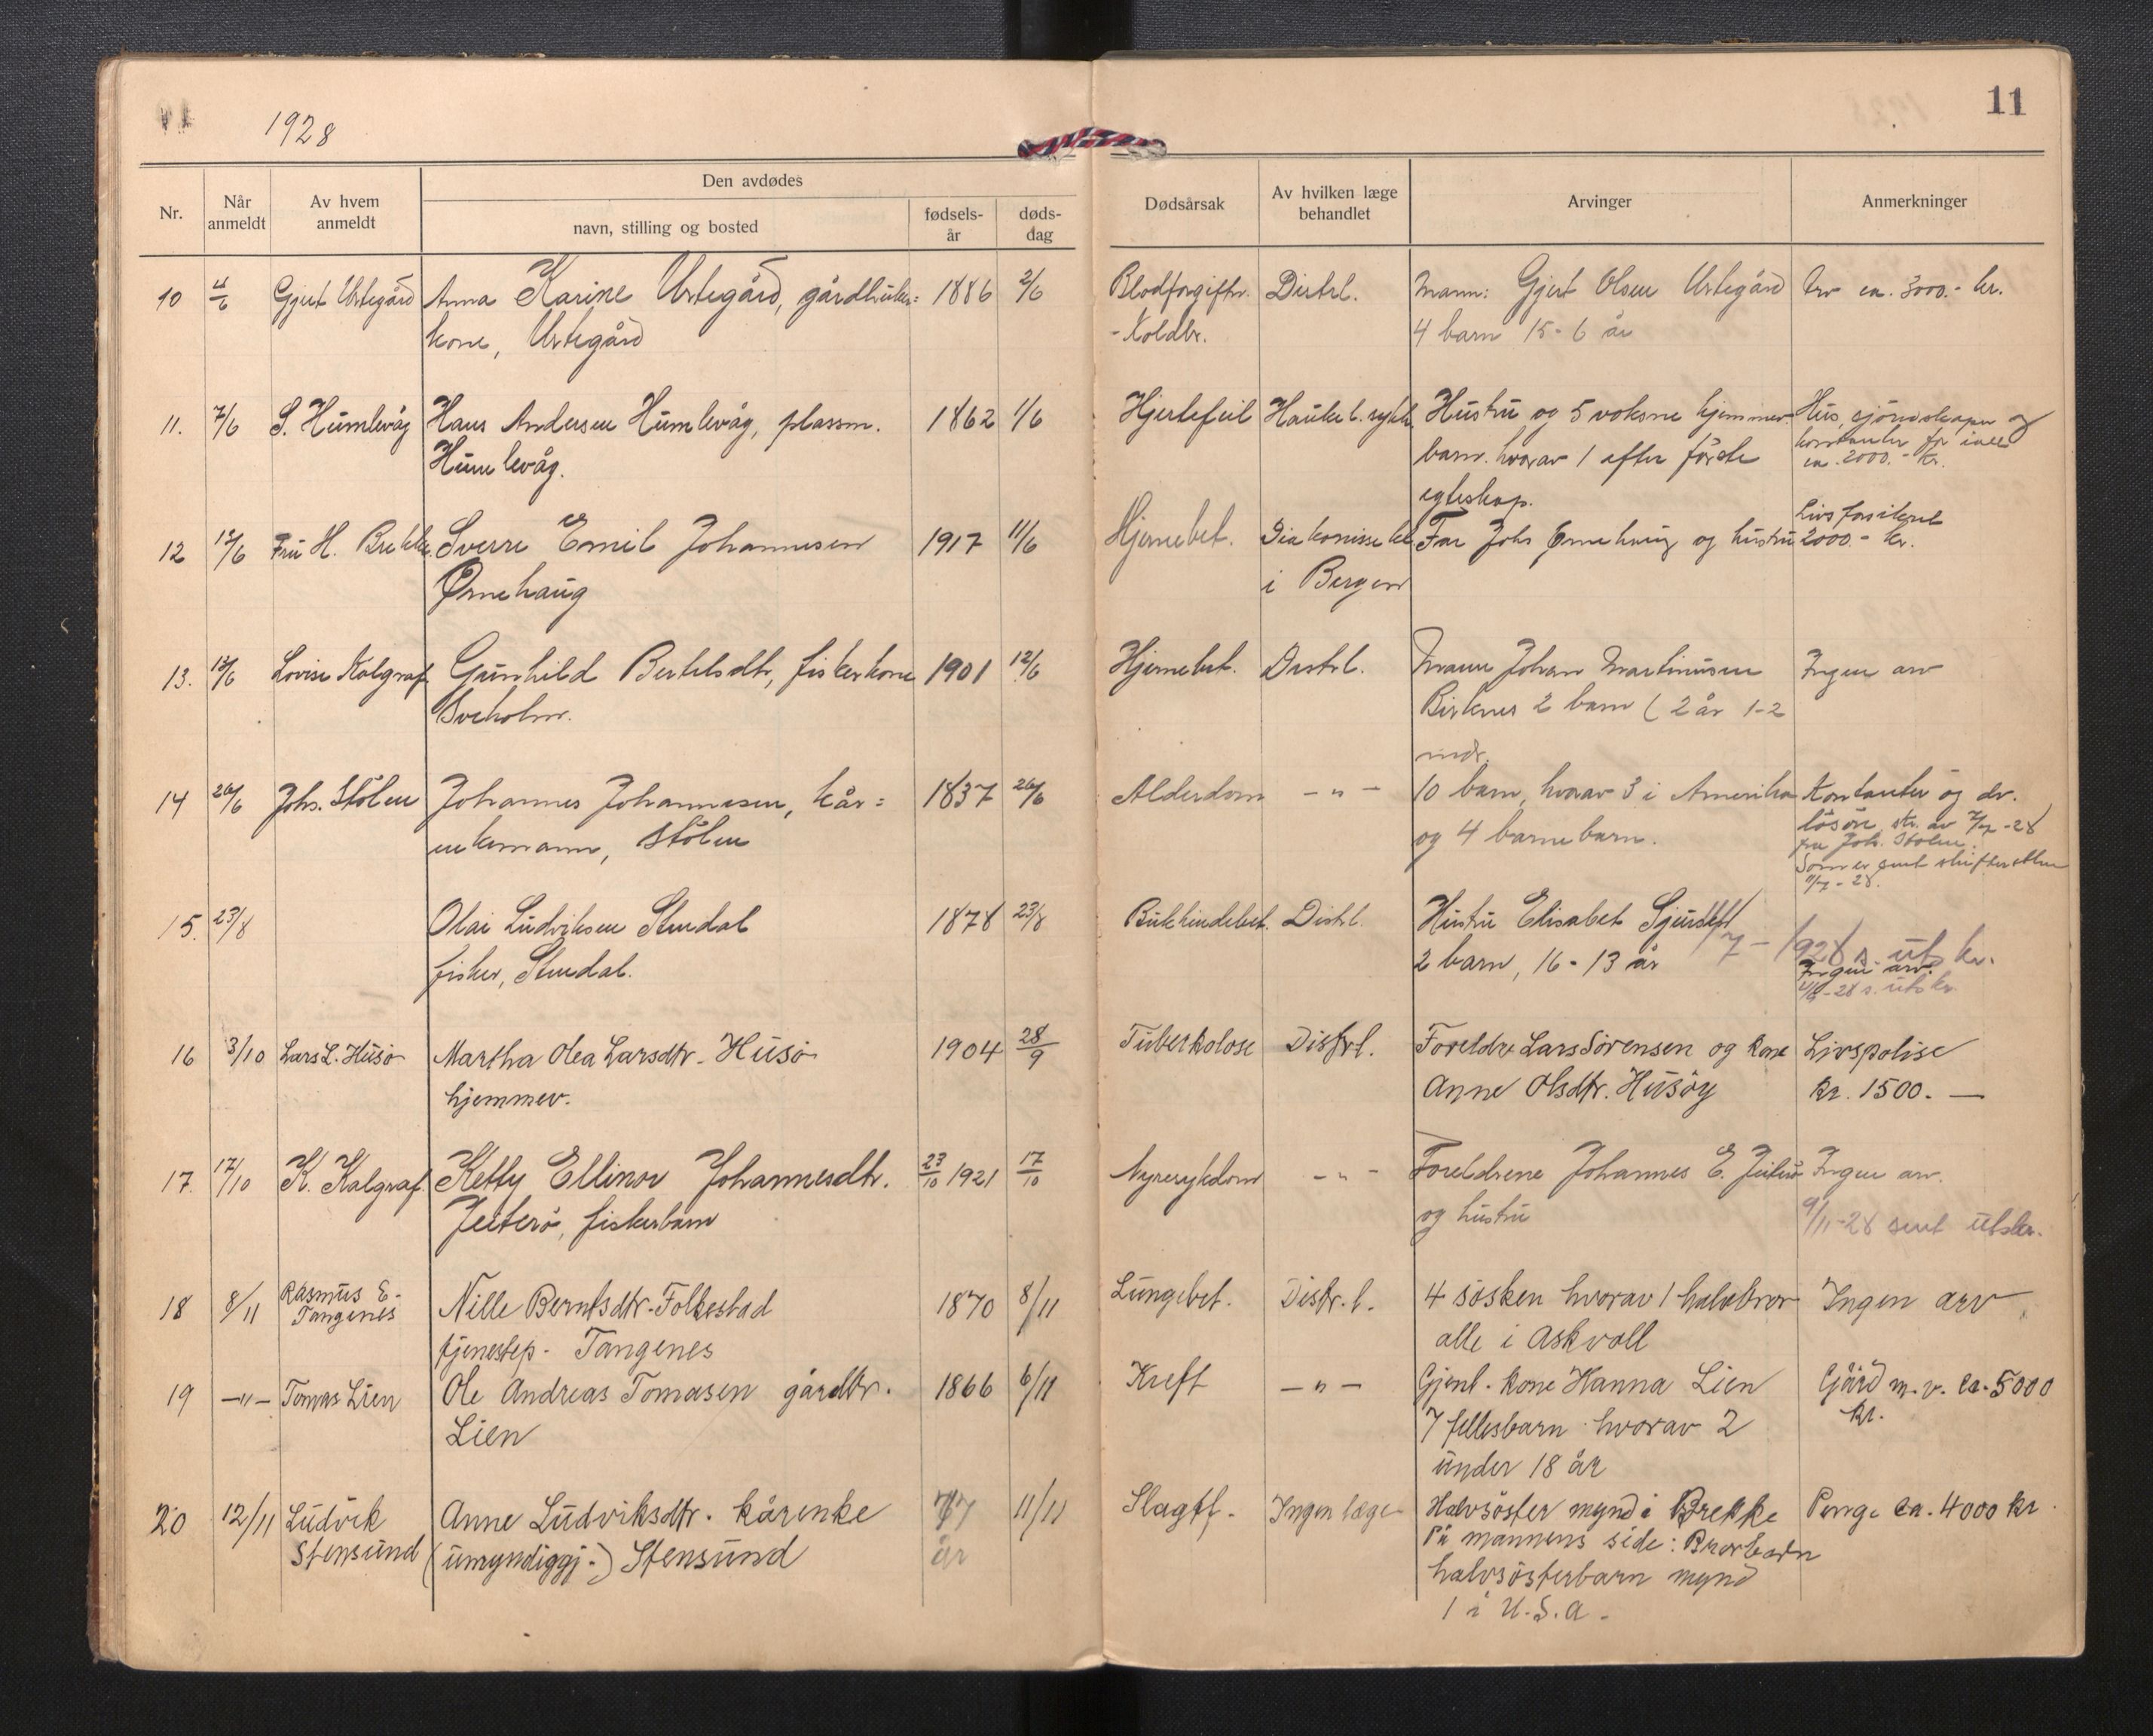 1928
11
Nr.
Når anmeldt
Av hvem anmeldt
Den avdødes
navn, stilling og bosted
fødsels-år
døds-dag
Dødsårsak
Av hvilken læge behandlet
Arvinger
Anmerkninger
10 4/6 Gjert Urtegård Anna Karine Urtegård, gårdbruker= 1886 2/6 Blodforgiftn. Distrl. Mann: Gjert Olsen Urtegård Arv ca. 3000.- kr.
kone, Urtegård - Koldbr. 4 barn 15-6 år
11. 7/6 S. Humlevåg Hans Andersen Humlevåg, plassm. 1862 1/6 Hjertefeil Haukel. sykh. Hustru og 5 voksne hjemmev. Hus, sjöredskaper og
Humlevåg. barn hvorav 1 efter förste kontanter for ialt
egteskap. ca. 2000.- kr.
12 12/6 Fru H. Brekke Sverre Emil Johannesen 1917 11/6 Hjernebet. Diakonissehl. Far Johs Ørnehaug og hustru Livsforsikret 2000.- kr.
Ørnehaug i Bergen
13. 13/6 Lovise Kalgraf Gunhild Bertelsdtr, fiskerkone 1901 12/6 Hjernebet. Distrl. Mann Johan Martinusen Ingen arv
Birknes 2 barn (2 år 1-2
mdr.
14 26/6 Johs. Stölen Johannes Johannesen, kår= 1837 26/6 Alderdom - " - 10 barn, hvorav 3 i Amerika Kontanter og dv.
enkemann, Stölen og 4 barnebarn. lösöre, skr. av 7/7-28
fra Joh. Stolen.
Som er sent skifteretten
11/7-28.
15. 23/8 Olai Ludviksen Stendal 1878 23/8 Bukhindebet. Distrl. Hustru Elisabet
fisher, Stendal. 2 barn, 16-13 år 7 - 1928 s. utskr.
Ingen arv.
-28 s. utskr.
16 3/10 Lars L. Husö Martha Olea Larsdtr. Husö 1904 28/9 Tuberkolose Distrl. Foreldre Lars Sörensen og kone Livspolise
hjemmev. Anne Olsdtr. Husöy kr. 1500. —
17. 17/10 K. Kalgraf. Ketty Ellinor Johannesdtr. 23/10 1921 17/10 Nyresykdom - " - Foreldrene Johannes E. Jeiterö Ingen arv.
Jeiterö, fiskerbarn og hustru 9/11-28 sent utskr.
18 8/11 Rasmus E. Tangenes Nille Berntsdtr. Folkestad 1870 8/11 Lungebet. Distr. l. 4 sösken hvorav 1 halvbror Ingen arv
tjenestep. Tangenes alle i Askvoll
19 —"— Tomas Lien Ole Andreas Tomasen gårdbr. 1866 6/11 Kreft —"— Gjenl. kone Hanna Lien Gård m.v. ca. 5000 kr.
Lien 7 fellesbarn hvorav 2
under 18 år
20 12/11 Ludvik Stensund Anne Ludviksdtr. kårenke 77 år 11/11 Slagtf. Ingen læge Halvsöster mynd i Brekke Penge ca. 4000 kr
(umyndiggj.) Stensund På mannens side: Brorbarn
halvsösterbarn mynd
1 i U.S.A.